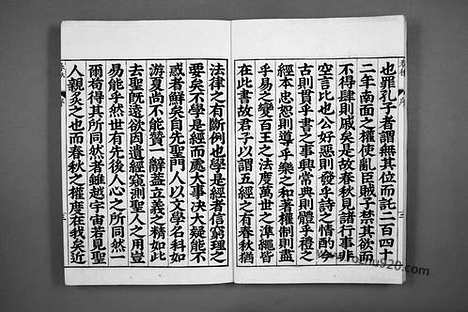 也罪孔子者謂無其位而託二百四十
二年南面之權使亂臣賊子禁其欲而
不得肆則戚矣是故春秋見諸行事非
空言比也公好惡則發乎詩之情酌今
古則貫乎書之事興常典則體乎禮之
經本忠恕則導乎樂之和著權制則盡
乎易之變百王之法度萬世之準繩皆
在此書故君子以謂五經之有春秋猶
法律之有斷例也學是經者信窮理之
要矣不學是經而處大事決大疑能不
惑者鮮矣自先聖門人以文學名科如
游夏尚不能贊一辭蓋立義之精如此
去聖既遠欲因遺經窺測聖人之用豈
易能乎然世有先後人心之所同然一
爾苟得其所同然者雖越宇宙若見聖
人親炙之也而春秋之權度在我矣近